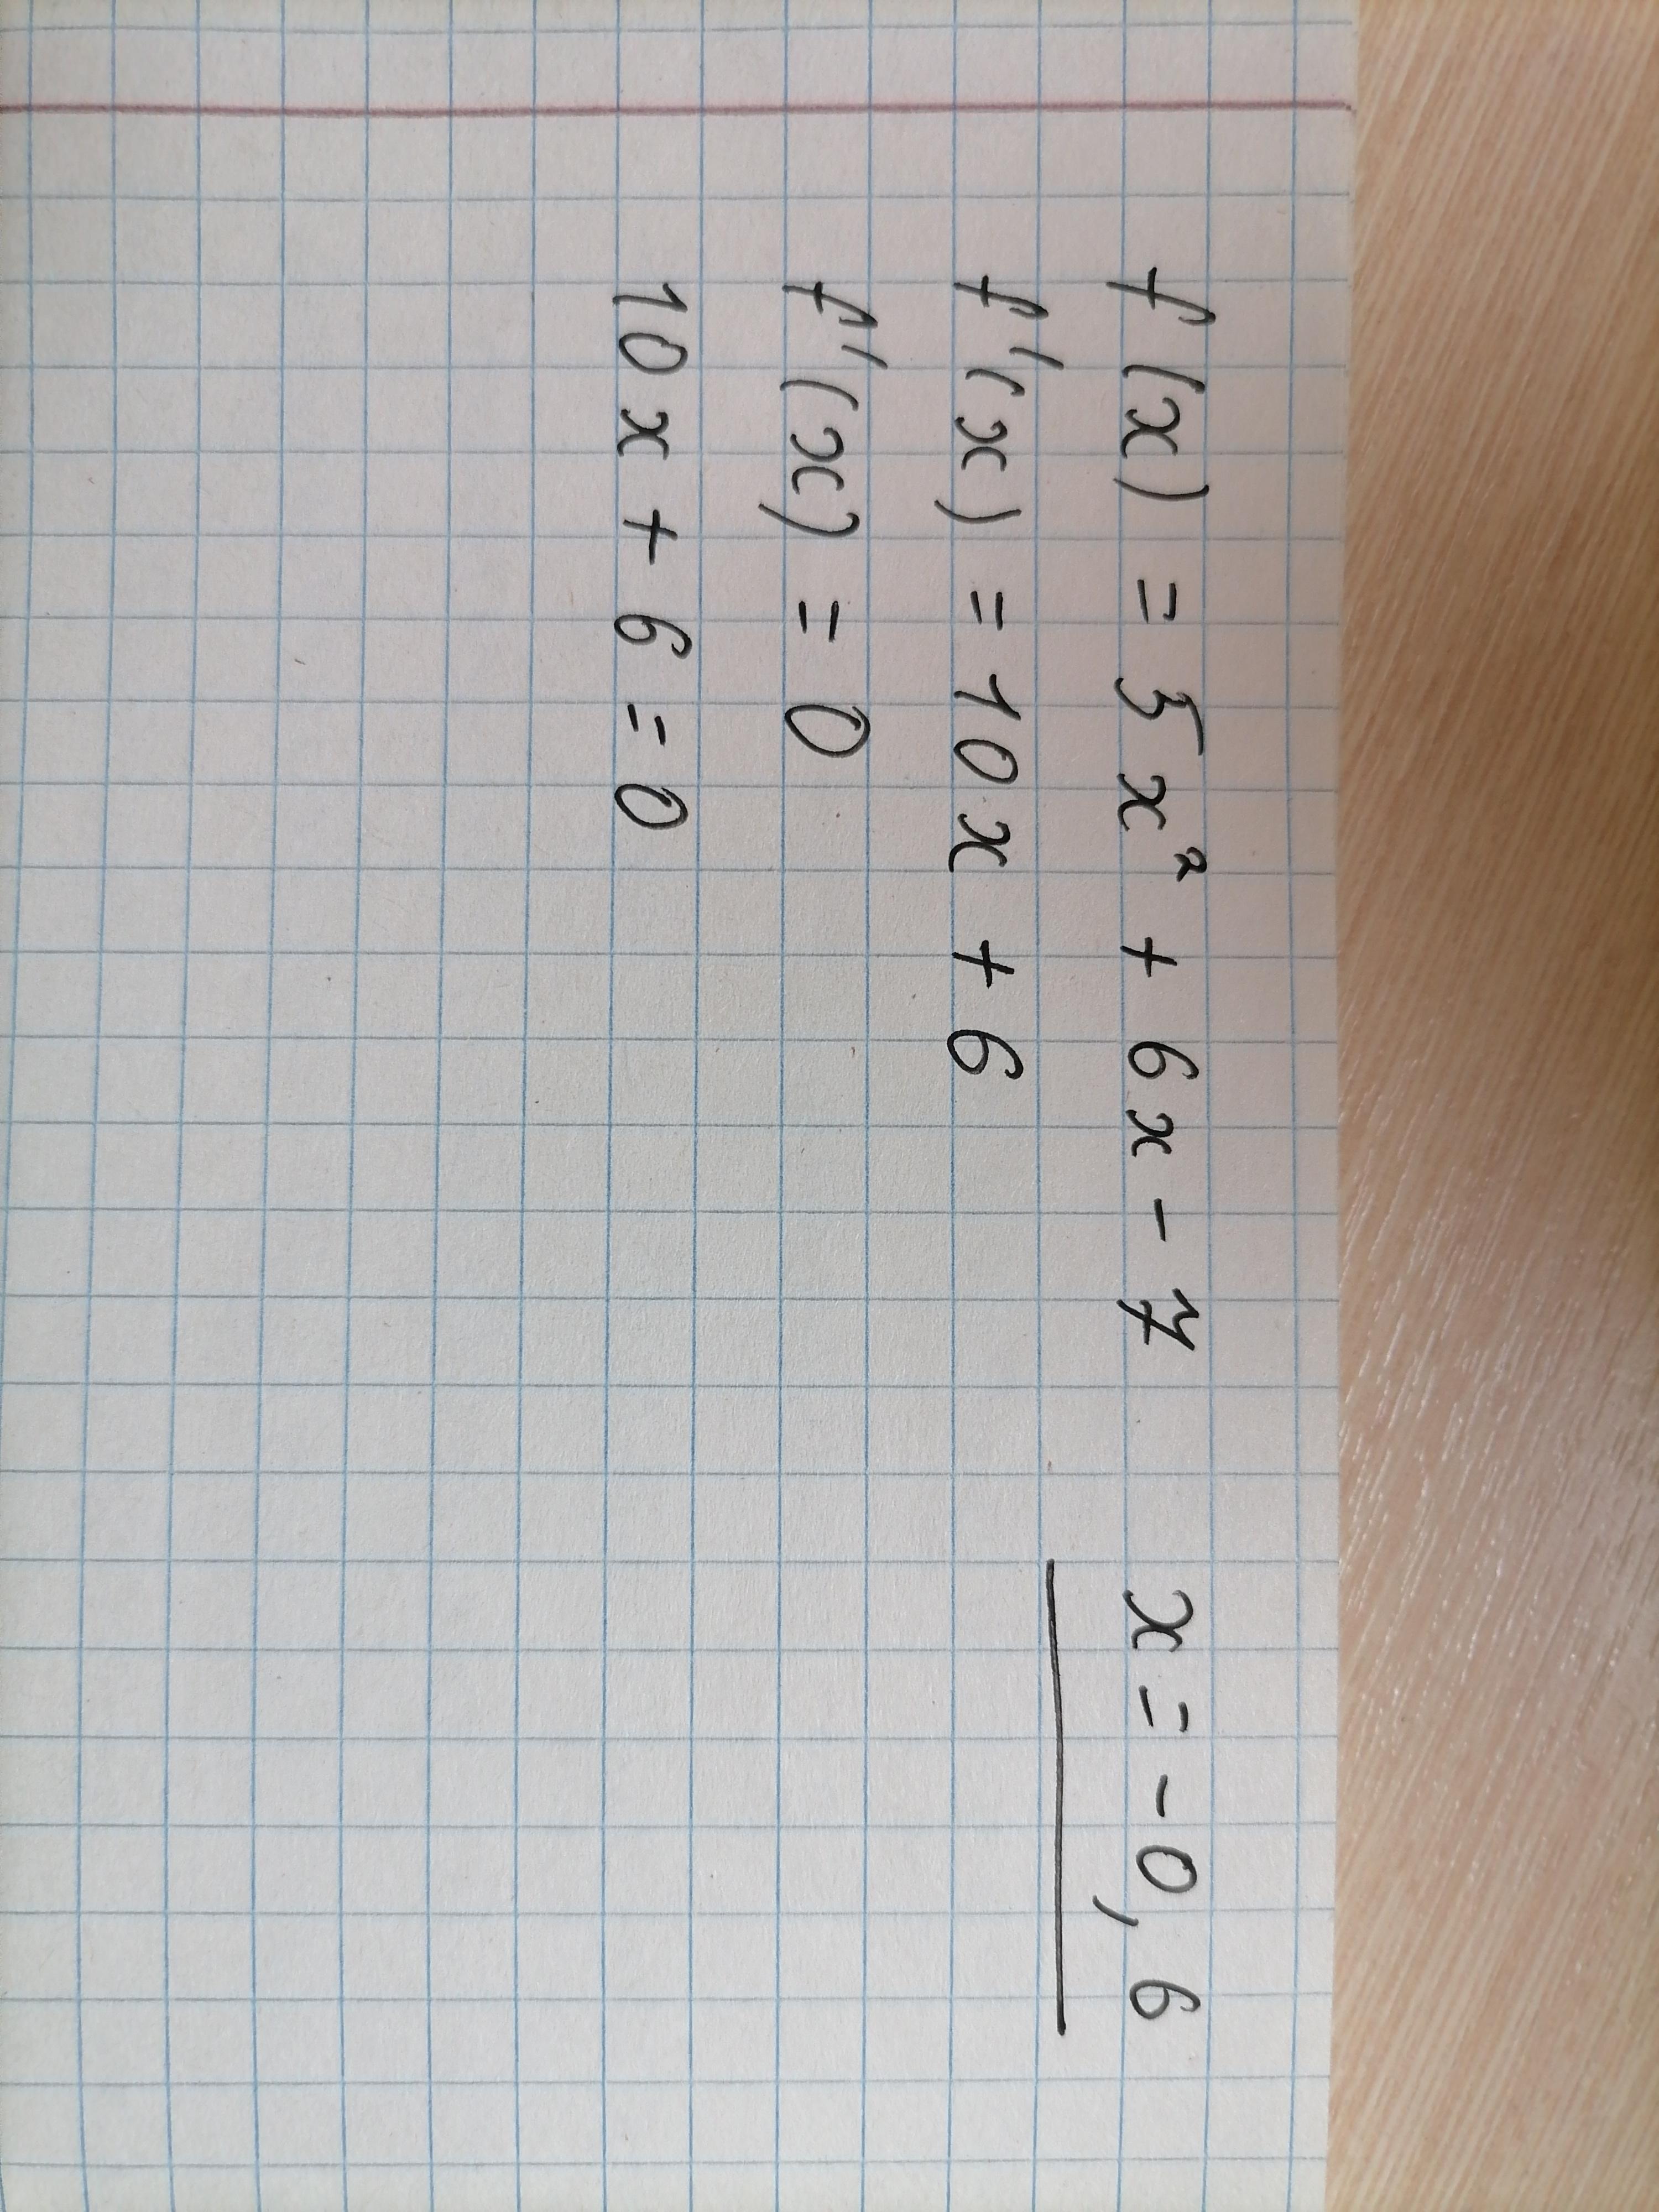 f(x) = 5x² + 6x - 7
f'(x) = 10x + 6
f'(x) = 0
10x + 6 = 0
x = -0,6